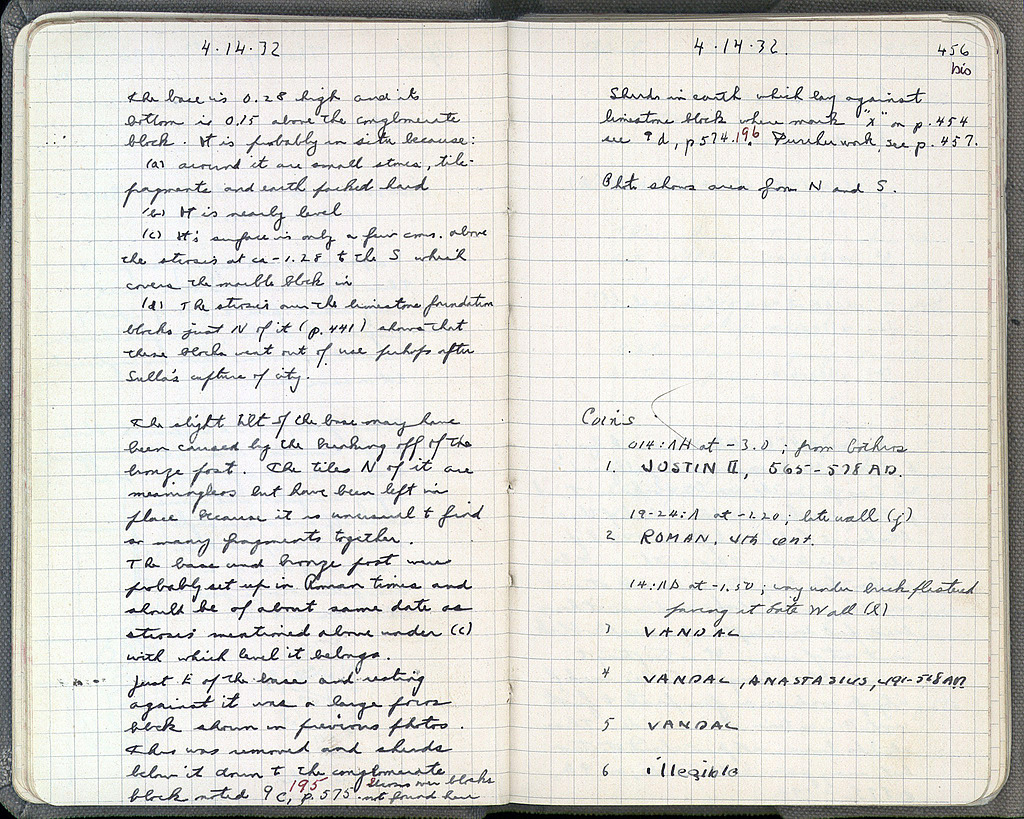 4.14.32
The base is 0.28 high and its
bottom is 0.15 above the conglomerate
block. It is probably in situ because:
(a) around it are small stones, tile-
fragments and earth packed hard
(b) It is nearly level
(c) It's surface is only a few cms. above
the stosis at ca -1.28 to the S which
covers the marble block in
(d) The stosis over the limestone foundation
blocks just N of it (p. 441) shows that
these blocks went out of use perhaps after
Sulla's capture of city.
The slight tilt of the base may have
been caused by the breaking off of the
bronze post. The tiles N of it are
meaningless but have been left in
place because it is unusual to find
so many fragments together.
The base and bronze post were
probably set up in Roman times and
should be of about same date as
stosis mentioned above under (c)
with which level it belongs.
Just E of the base and resting
against it was a large poros
block shown in previous photos.
This was removed and sherds
below it down to the conglomerate
block noted 9 c, p. 575 195 Stosis over blocks
not found here
4.14.32.
456
bis
Sherds in earth which lay against
limestone block where mark "x" on p. 454
see 9 d, p 574. 196. Further work, see p. 457.
Photo shows area from N and S.
Coins
014:ΛH at -3.0; from bothros
1. JUSTIN II, 565-578 AD.
19-24:Λ at -1.20; late wall (j)
2 ROMAN, 4th cent.
14:ΛΔ at -1.50; way under brick plastered
facing it late Wall (l)
3 VANDAL
4 VANDAL, ANASTASIUS, 491-518 AD
5 VANDAL
6 illegible